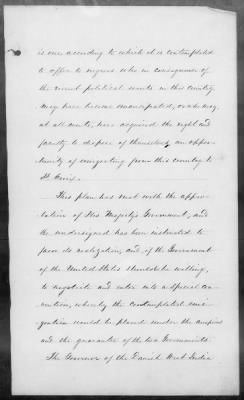 is one according to which it is contemplated
to offer to negroes who in consequence of
the recent political events in this country
may have become emancipated, or who may,
at all events, have acquired the right and
faculty to dispose of themselves, an oppor-
tunity of emigrating from this country to
St. Croix.
This plan has met with the appro-
bation of His Majesty's Government, and
the undersigned has been instructed to
favor its realization, and, if the Government
of the United States should be willing,
to negotiate and enter into a special con-
vention, whereby the contemplated emi-
gration would be placed under the auspices
and the guarantee of the two Governments.
The Governor of the Danish West India